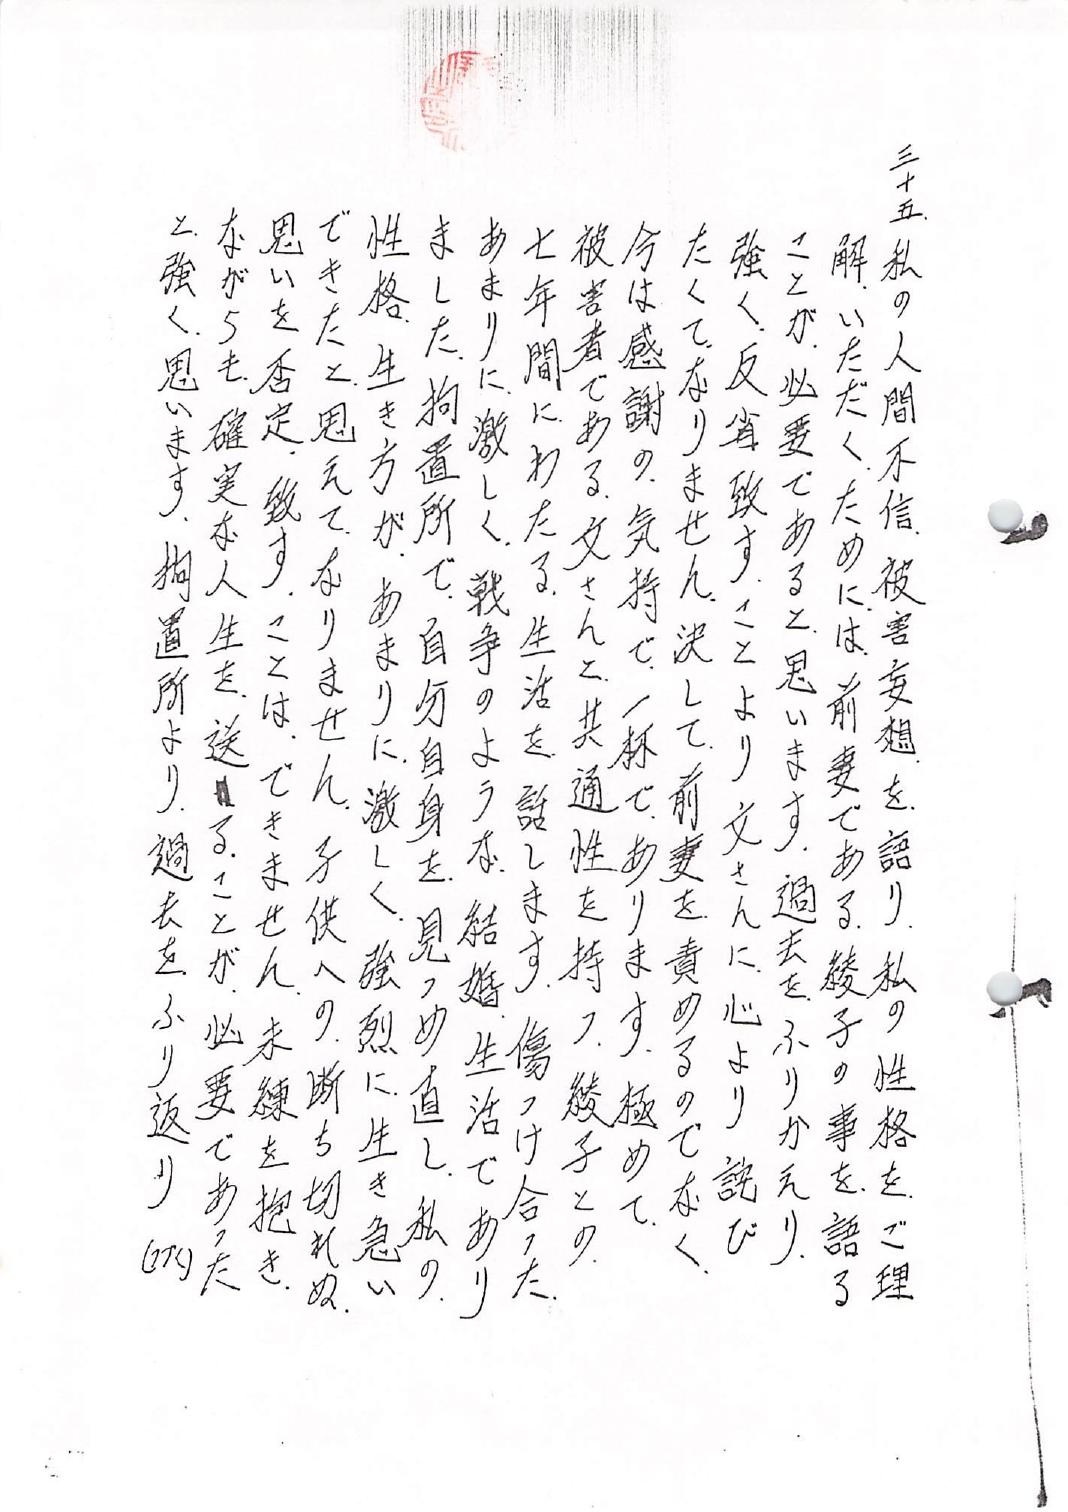 三十五、私の人間不信、被害妄想、を、語り、私の性格を、ご理
解、いただく、ためには、前妻である、綾子の事を、語る
ことが、必要であると、思います、過去を、ふりかえり、
強く、反省致す、ことより、文さんに、心より、詫び
たくて、なりません、決して、前妻を、責めるのでなく、
今は感謝の、気持で、一杯で、あります、極めて、
被害者である、文さんと、共通性を、持つ、綾子との、
七年間に、わたる、生活を、話します、傷つけ合った、
あまりに、激しく、戦争のような、結婚、生活であり
ました、拘置所で、自分自身を、見つめ直し、私の、
性格、生き方が、あまりに、激しく、強烈に、生き急い
できたと、思えて、なりません、子供への、断ち切れぬ、
思いを、否定、致す、ことは、できません、未練を、抱き、
ながらも、確実な人生を、送る、ことが、必要であった
と、強く、思います、拘置所より、過去を、ふり返り